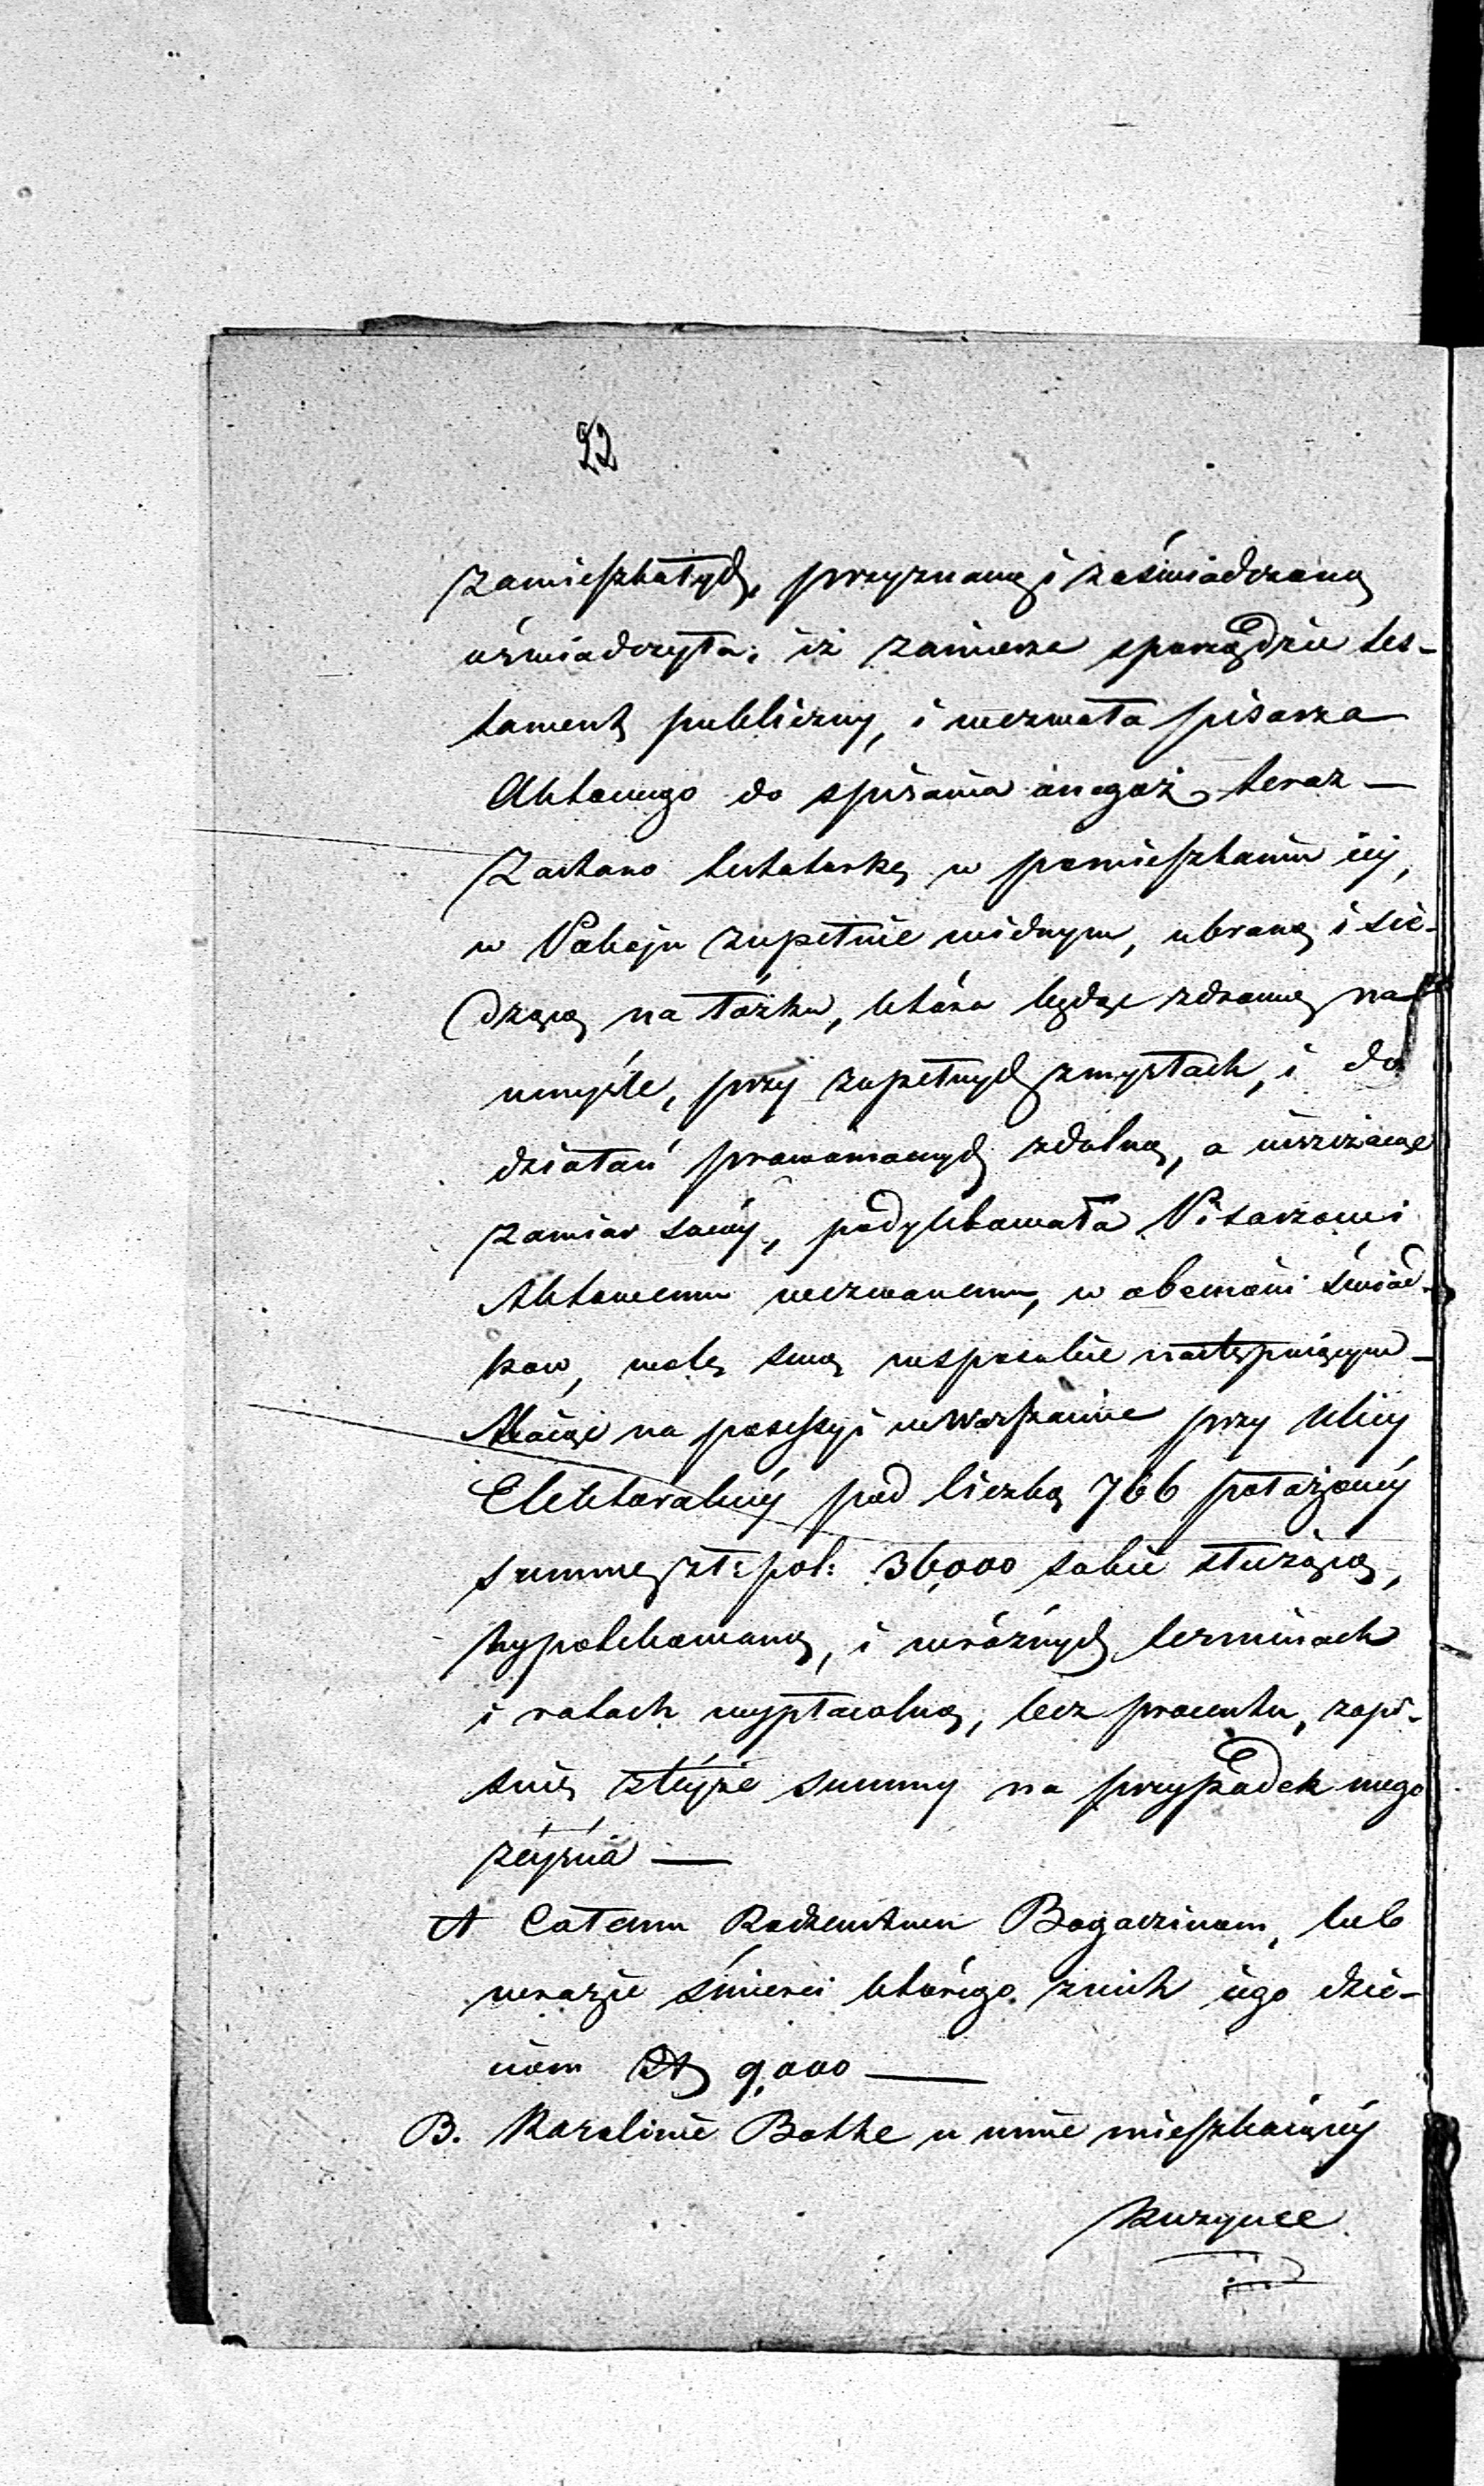 22
zamieszkałych, przyznaną i zaświadczoną
oświadczyła, iż zamierza sporządzić tes-
tament publiczny, i wezwała pisarza
Aktowego do spisania onegoż, teraz —
Zastano testatorkę w pomieszkaniu iéy,
w Pokoju zupełnie widnym, ubraną i sie-
dzącą na łóżku, która będąc zdrową na
umyśle, przy zupełnych zmysłach, i do
działań prawomocnych zdolną, a uiszczając
zamiar swóy, podyktowała Pisarzowi
Aktowemu wezwanemu, w obecności świad-
ków, wolę swą wsposobie następuiącym —
Maiąc na posessyi w Warszawie przy Ulicy
Elektoralnéy pod liczbą 766 położonéy
summę zł: pol: 36,000 sobie służącą,
hypotekowaną, i w różnych terminach
i ratach wypłacalną, bez procentu, zapi-
suię z téyże summy na przypadek mego
zéyścia —
A Całemu Rodzeństwu Bogaczinom, lub
w razie śmierci którego z nich iego dzie-
ciom Zł 9,000 —
B. Karolinie Bothe u mnie mieszkaiącéy
Kuzynce